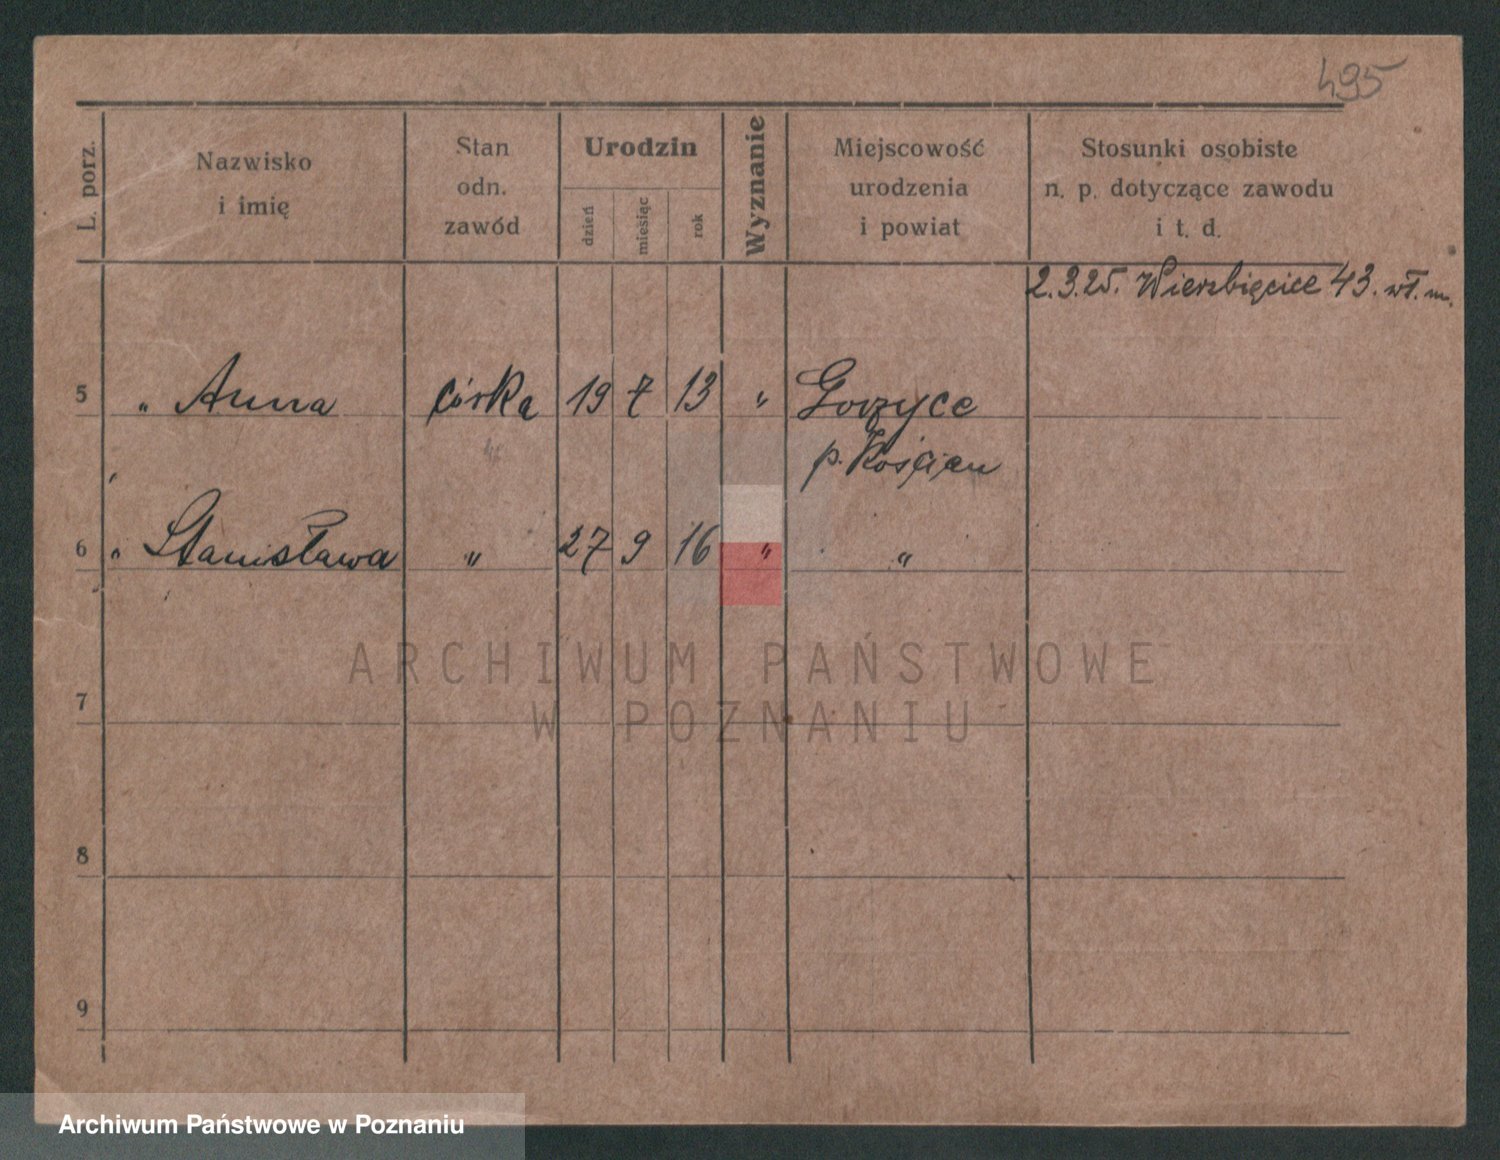 495
L. porz.
Nazwisko
i imię
Stan
odn.
zawód
Urodzin
dzień
miesiąc
rok
Wyznanie
Miejscowość
urodzenia
i powiat
Stosunki osobiste
n. p. dotyczące zawodu
i t. d.
2.3.25. Wierzbięcice 43. wł. m.
5 „ Anna córka 19 7 13 „ Gorzyce
p. Kościan
6 „ Stanisława „ 27 9 16 „ „
ARCHIWUM PAŃSTWOWE
W POZNANIU
7
8
9
Archiwum Państwowe w Poznaniu